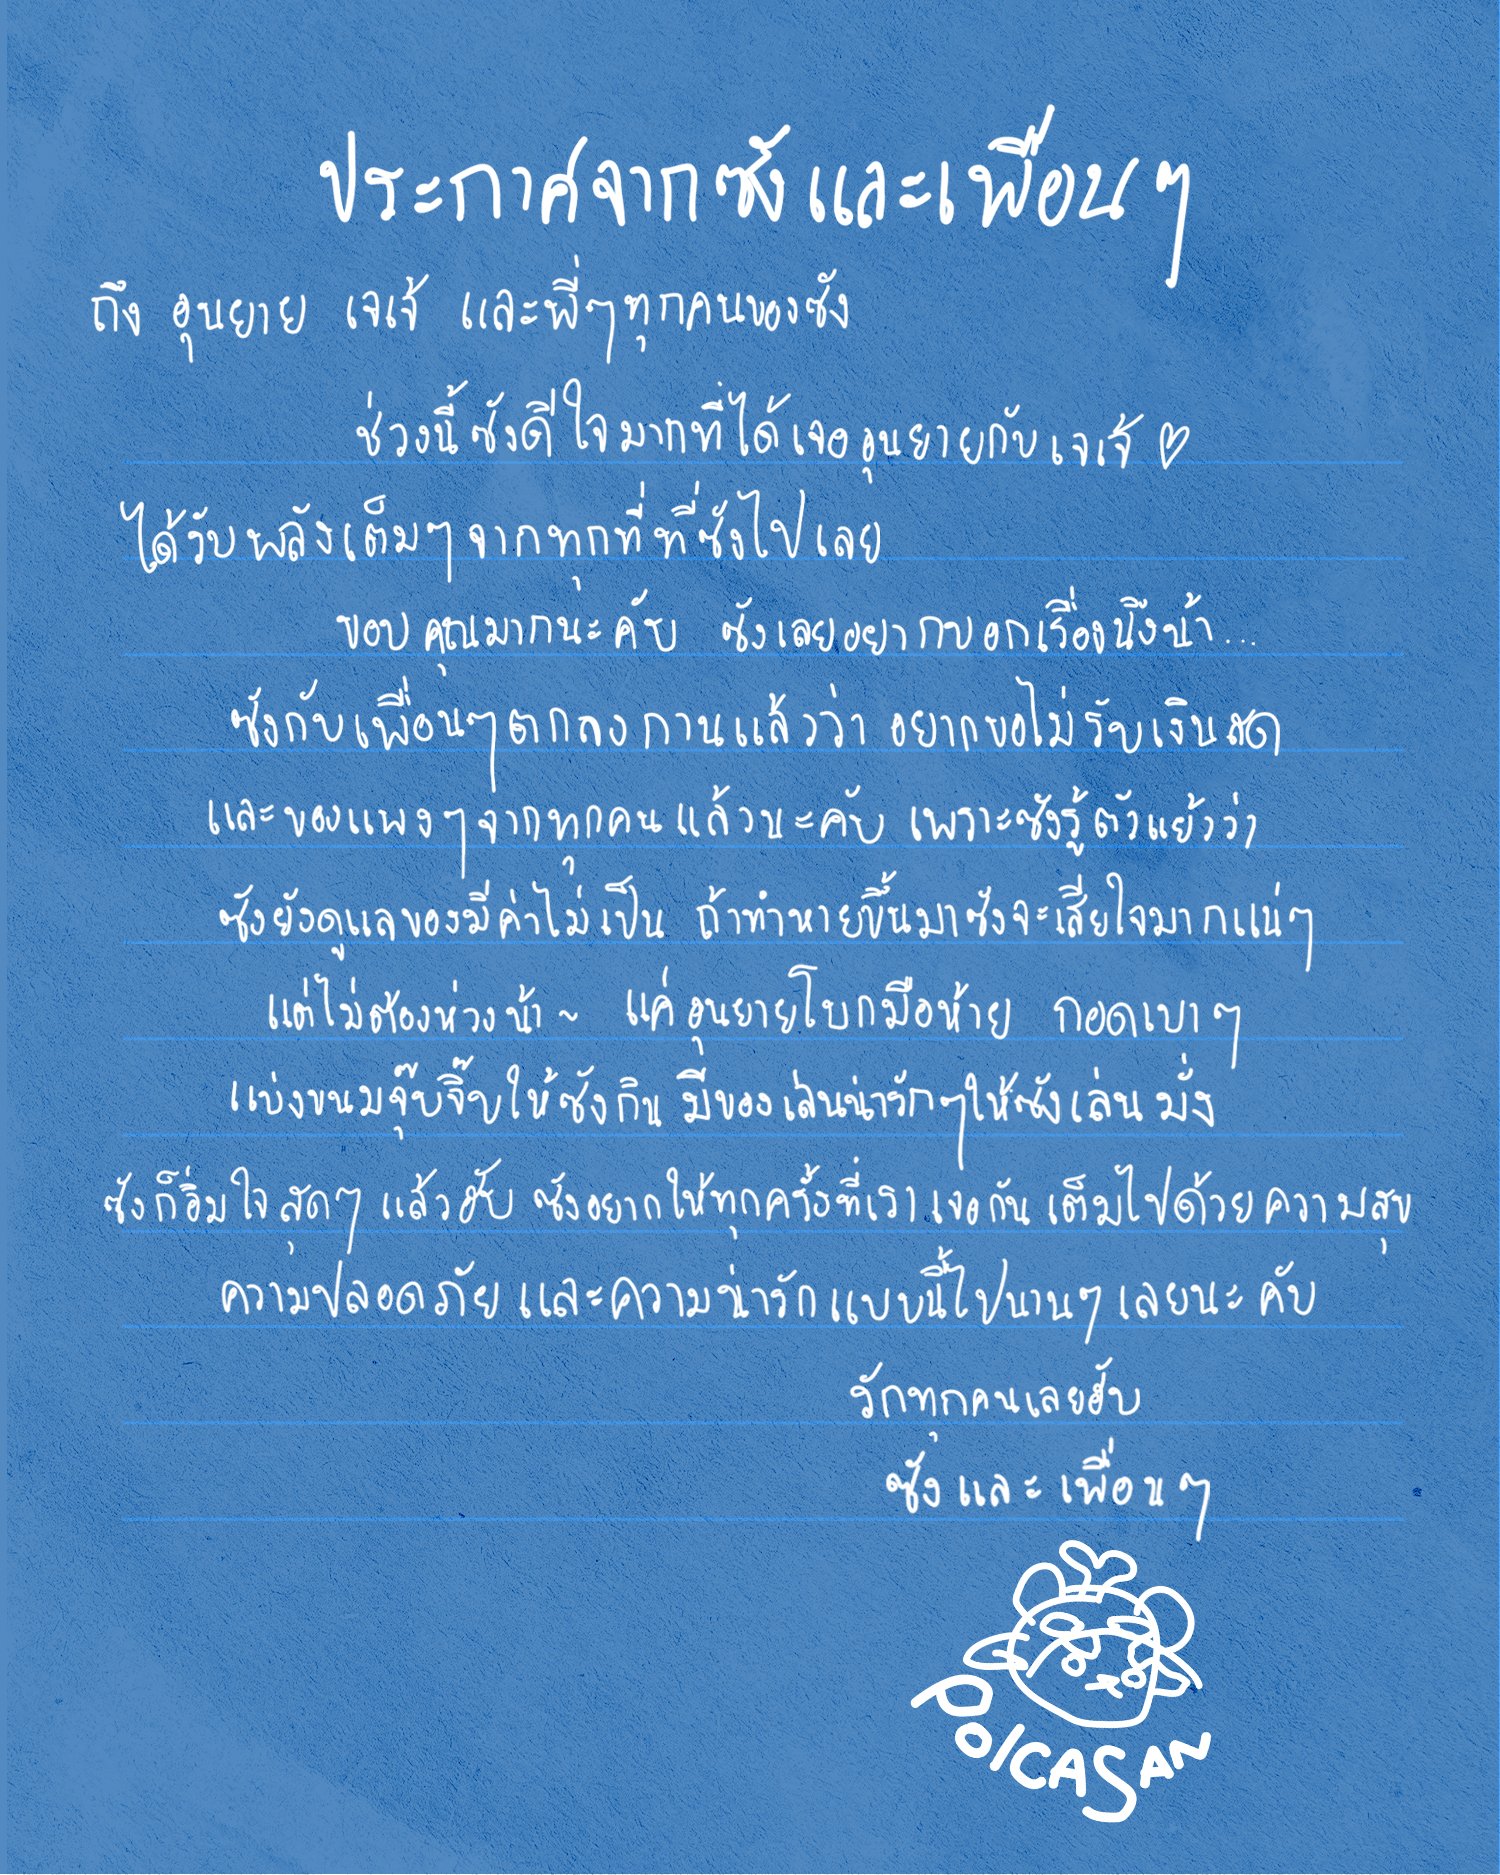 ประกาศจากซังและเพื่อนๆ
ถึง อุนยาย เจเจ้ และพี่ๆทุกคนของซัง
ช่วงนี้ซังดีใจมากที่ได้เจออุนยายกับเจเจ้ ♡
ได้รับพลังเต็มๆจากทุกที่ที่ซังไปเลย
ขอบคุณมากนะคับ ซังเลยอยากบอกเรื่องนึงน้า...
ซังกับเพื่อนๆตกลงกานแล้วว่า อยากขอไม่รับเงินสด
และของแพงๆจากทุกคนแล้วนะคับ เพราะซังรู้ตัวแย้วว่า
ซังยังดูแลของมีค่าไม่เป็น ถ้าทำหายขึ้นมาซังจะเสียใจมากแน่ๆ
แต่ไม่ต้องห่วงน้า~ แค่อุนยายโบกมือห้าย กอดเบาๆ
แบ่งขนมจุ๊บจิ๊บให้ซังกิน มีของเล่นน่ารักๆให้ซังเล่นมั่ง
ซังก็อิ่มใจสุดๆแล้วฮับ ซังอยากให้ทุกครั้งที่เราเจอกัน เต็มไปด้วยความสุข
ความปลอดภัย และความน่ารักแบบนี้ไปนานๆเลยนะคับ
รักทุกคนเลยฮับ
ซังและเพื่อนๆ
POlCASAN